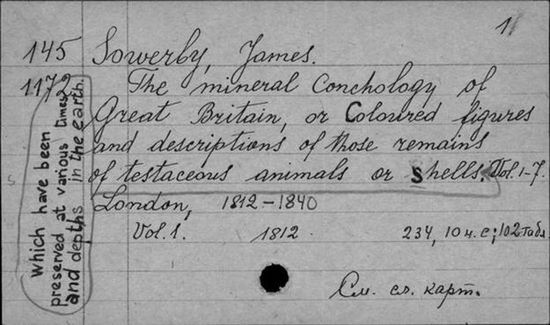 1
145 Sowerby, James.
1172 The mineral Conchology of
Great Britain, or Coloured figures
and descriptions of those remains
of testaceous animals or shells. Vol. 1-7.
London, 1812-1840
Vol. 1. 1812 234, 10 н. с; 102 табл.
См. сл. карт.
which have been
preserved at various times
and depths in the earth.